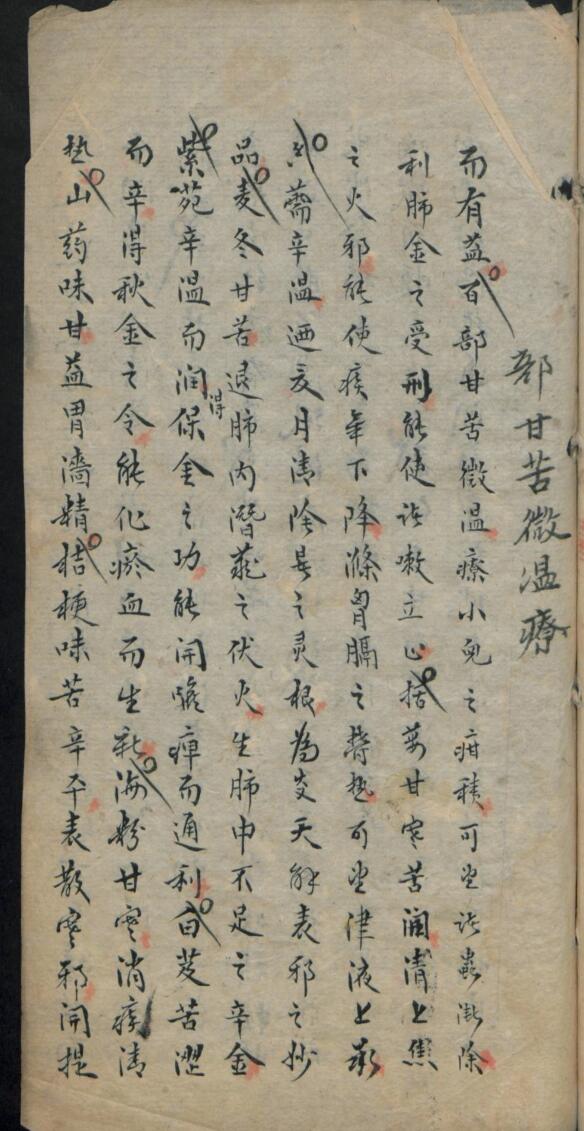 部甘苦微温療
而有益百部甘苦微温療小兒之疳積可坐諸蟲漸除
利肺金之受刑能使诙嗽立止括蒌甘寒苦润清上焦
之火邪能使痰氣下降滌胷膈之欝热可坐津液上承
薷辛温迺夏月清陰暑之灵根為炎天解表邪之妙
品麦冬甘苦退肺内潛藏之伏火生肺中不足之辛金
紫菀辛温而润得保金之功能開喉痺而通利白芨苦澀
而辛得秋金之令能化瘀血而生新海粉甘寒消痰清
热山药味甘益胃濇精桔梗味苦辛平表散寒邪開提